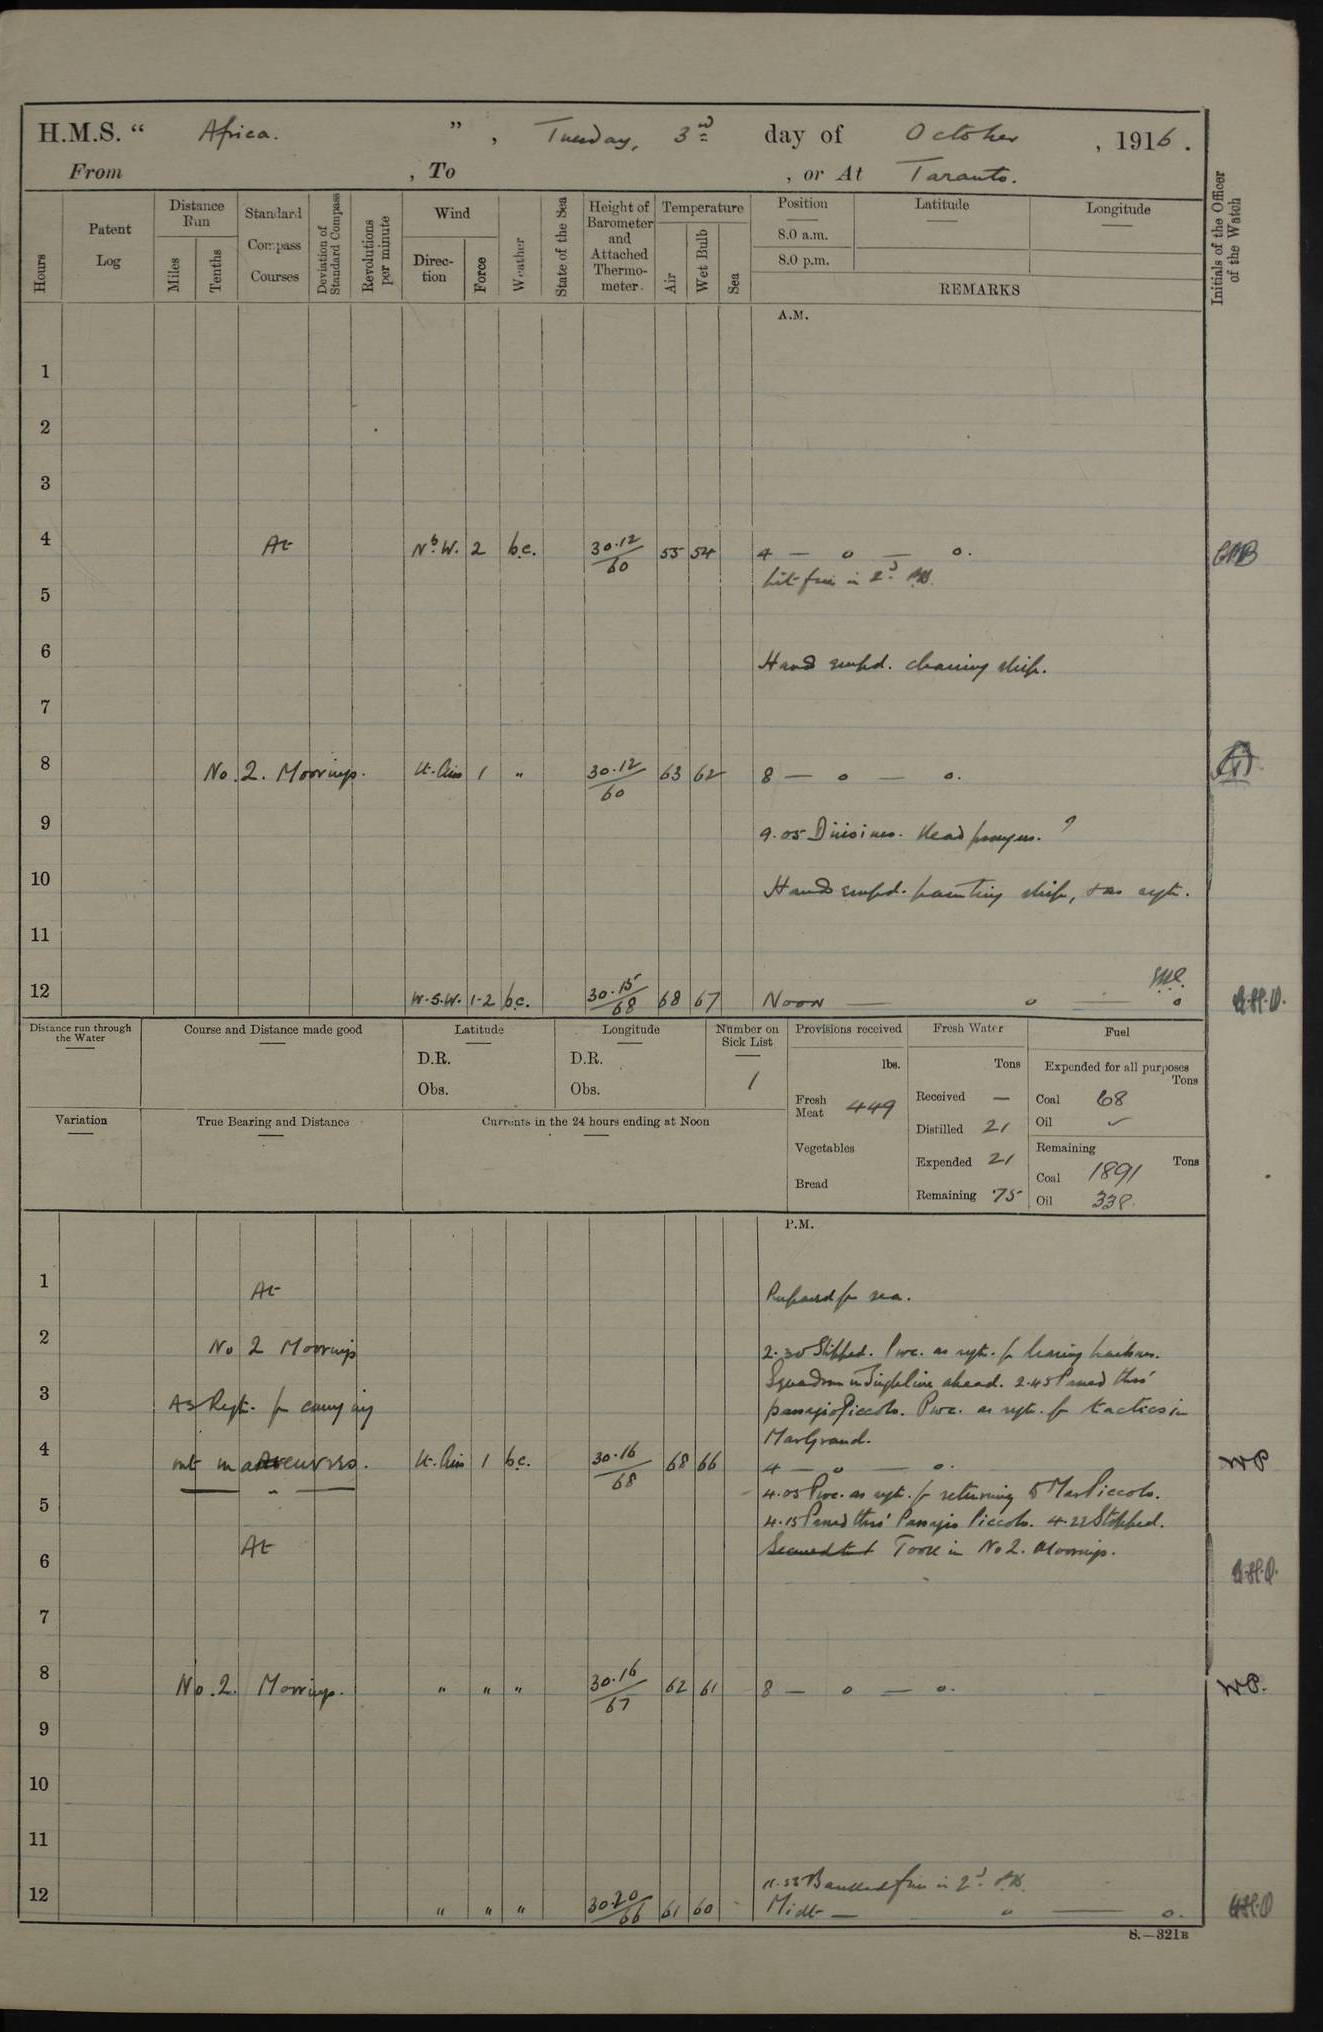 H.M.S. “ Africa. ” , Tuesday, 3rd day of October , 1916 .
From , To , or At Taranto.
Hours
Patent Log
Distance Run
Miles
Tenths
Standard Compass Courses
Deviation of Standard Compass
Revolutions per minute
Wind
Direction
Force
Weather
State of the Sea
Height of Barometer and Attached Thermometer.
Temperature
Air
Wet Bulb
Sea
Position
8.0 a.m.
8.0 p.m.
Latitude
Longitude
REMARKS
Initials of the Officer of the Watch
A.M.
1
2
3
4 At N b W. 2 b.c. 30.12/60 55 54 4 — o — o.
Lit fires in 2nd
5
6 Hands empd. cleaning ship.
7
8 No. 2. Moorings. Lt. Airs 1 " 30.12/60 63 62 8 — o — o.
9 9.05 Divisions. Read prayers.
10 Hands empd. painting ship, & as reqte.
11
12 W.S.W. 1-2 b.c. 30.15/68 68 67 Noon — o — o
Distance run through the Water
Course and Distance made good
Latitude
D.R.
Obs.
Longitude
D.R.
Obs.
Number on Sick List
1
Variation
True Bearing and Distance
Currents in the 24 hours ending at Noon
Provisions received
lbs.
Fresh Meat 449
Vegetables
Bread
Fresh Water
Tons
Received —
Distilled 21
Expended 21
Remaining 75
Fuel
Expended for all purposes
Tons
Coal 68
Oil
Remaining
Tons
Coal 1891
Oil 338.
P.M.
1 At Prepared for sea.
2 No 2 Moorings 2.30 Slipped. Proc. as reqte. for leaving harbour.
Squadron in Single line ahead. 2.45 Passed thro'
3 As Reqte. for carrying passagio Piccolo. Proc. as reqte. for tactics in
Mar Grand.
4 out manoeuvres. Lt. Airs 1 b.c. 30.16/68 68 66 4 — o — o. WP
5 4.05 Proc. as reqte. for returning to Mar Piccolo.
4.15 Passed thro' Passagio Piccolo. 4.22 Stopped.
At Secured to Took in No 2. Moorings.
6
7
8 No. 2. Moorings. " " " 30.16/67 62 61 8 — o — o. WP.
9
10
11
Banked fires in 2nd
12 " " " 30.20/66 61 60 Midt — o — o.
S.—321B